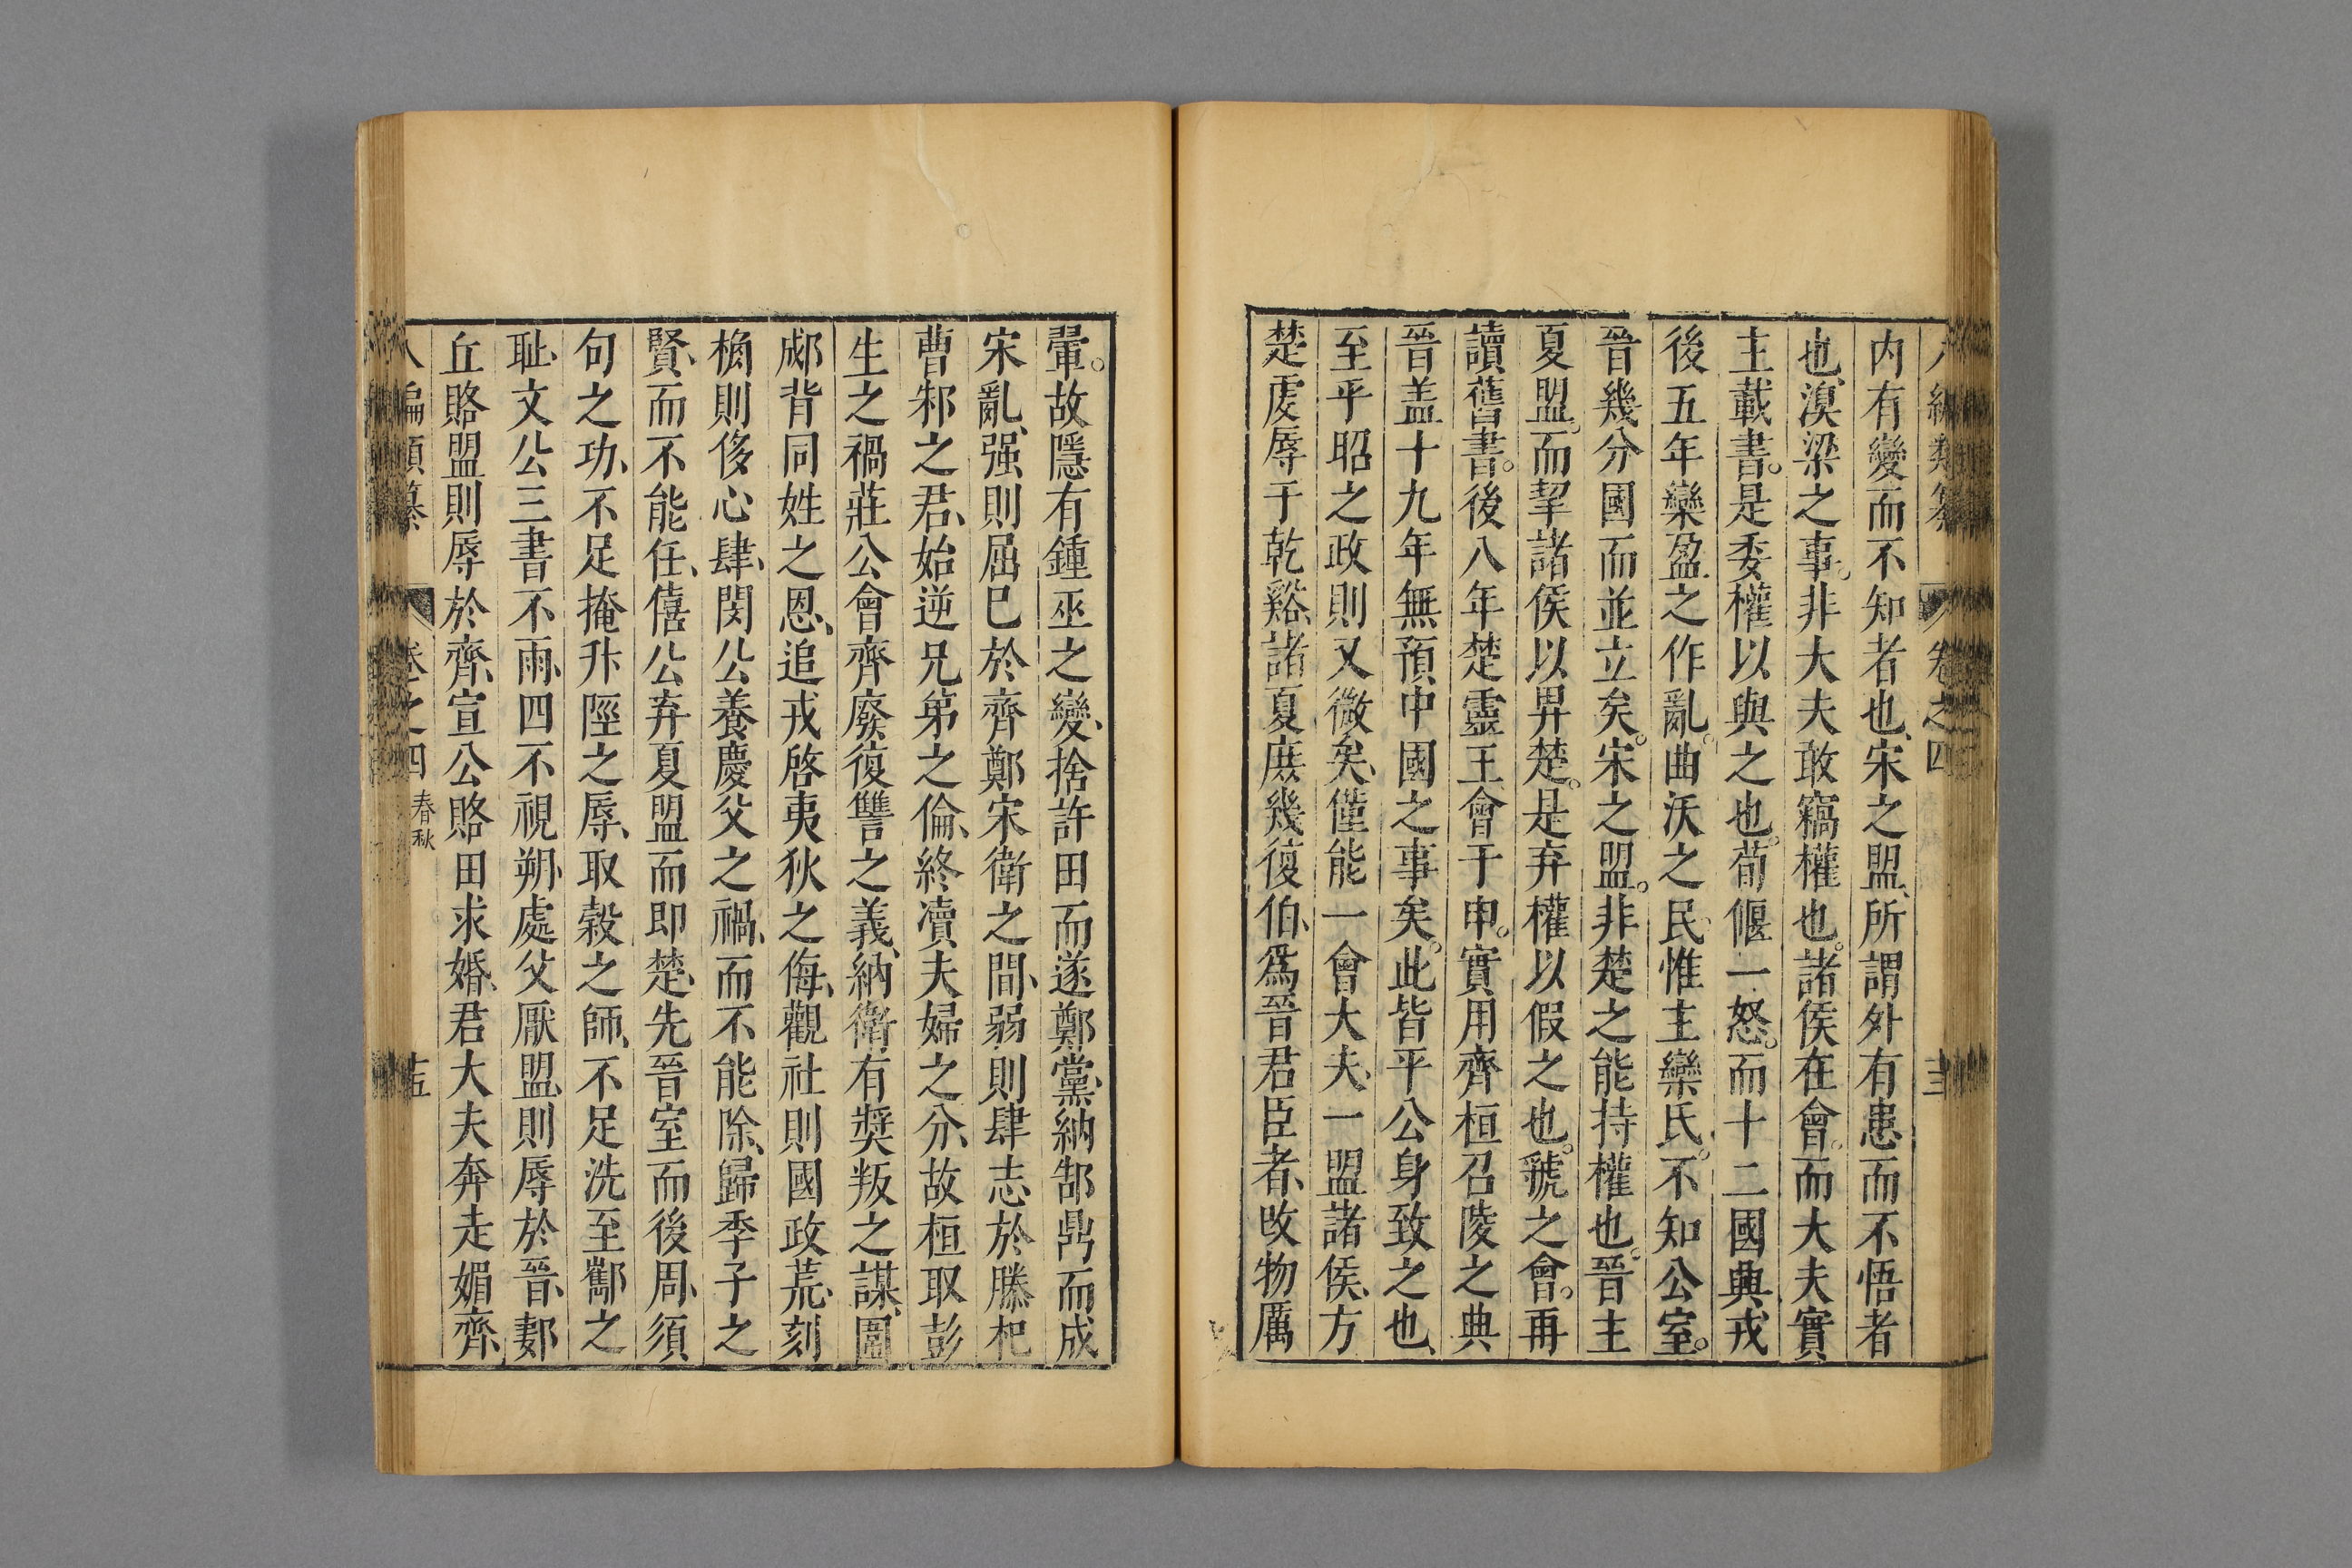 内有變而不知者也、宋之盟、所謂外有患而不悟者
也、溴梁之事。非大夫敢竊權也。諸侯在會。而大夫實
主載書。是委權以與之也。荀偃一怒。而十二國興戎
後五年欒盈之作亂。曲沃之民、惟主欒氏。不知公室。
晉幾分國而並立矣。宋之盟。非楚之能持權也。晉主
夏盟。而挈諸侯以畀楚。是弃權以假之也。虢之會。再
讀舊書。後八年楚靈王會于申。實用齊桓召陵之典
晉盖十九年無預中國之事矣。此皆平公身致之也、
至乎昭之政則又微矣、僅能一會大夫、一盟諸侯、方
楚虔辱于乾谿、諸夏庶幾復伯、爲晉君臣者、改物厲
翬。故隱有鍾巫之變、捨許田而遂鄭黨、納郜鼎而成
宋亂、强則屈巳於齊鄭宋衛之間、弱則肆志於滕杞
曹邾之君、始逆兄弟之倫、終瀆夫婦之分、故桓取彭
生之禍莊公會齊廢復讐之義、納衛有奬叛之謀、圍
郕背同姓之恩、追戎啓夷狄之侮、觀社則國政荒、刻
桷則侈心肆、閔公養慶父之禍、而不能除、歸季子之
賢、而不能任、僖公弃夏盟而即楚、先晉室而後周、須
句之功、不足掩升陘之辱、取穀之師、不足洗至酅之
耻、文公三書不雨、四不視朔、處父厭盟、則辱於晉、郪
丘賂盟則辱於齊、宣公賂田求婚、君大夫奔走媚齊、
卷之四 春秋